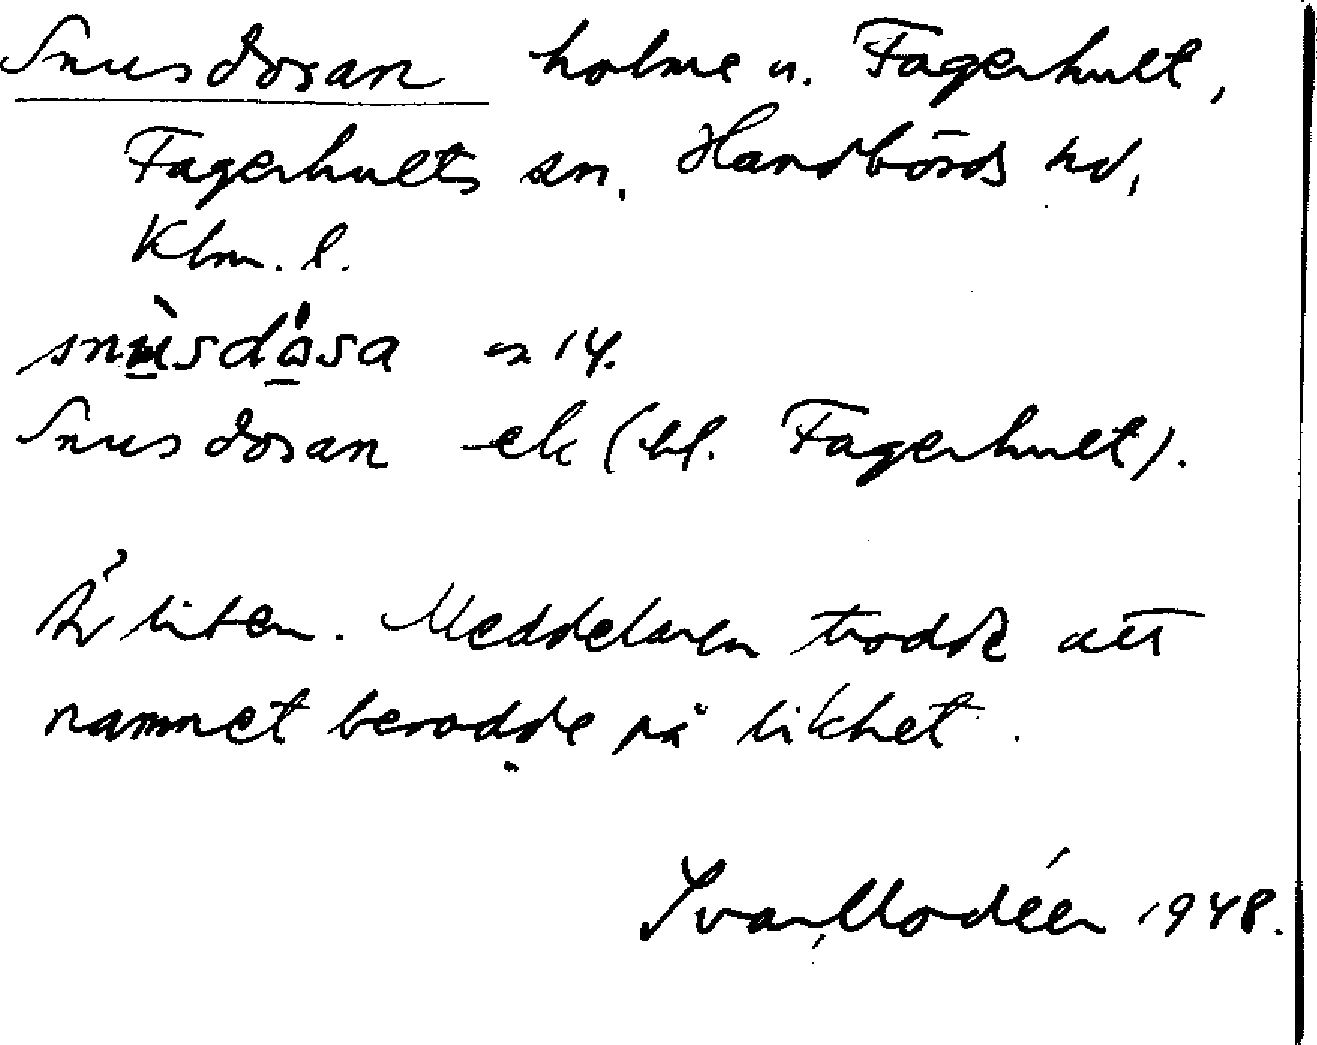 Snusdosan holme u. Fagerhult,
Fagerhults sn, Handbörds hd,
Klm. l.
snùsdåsa 14.
Snusdosan ek (bl. Fagerhult).
Är liten. Meddelaren trodde att
namnet berodde på likhet.
Ivar Modéer 1948.